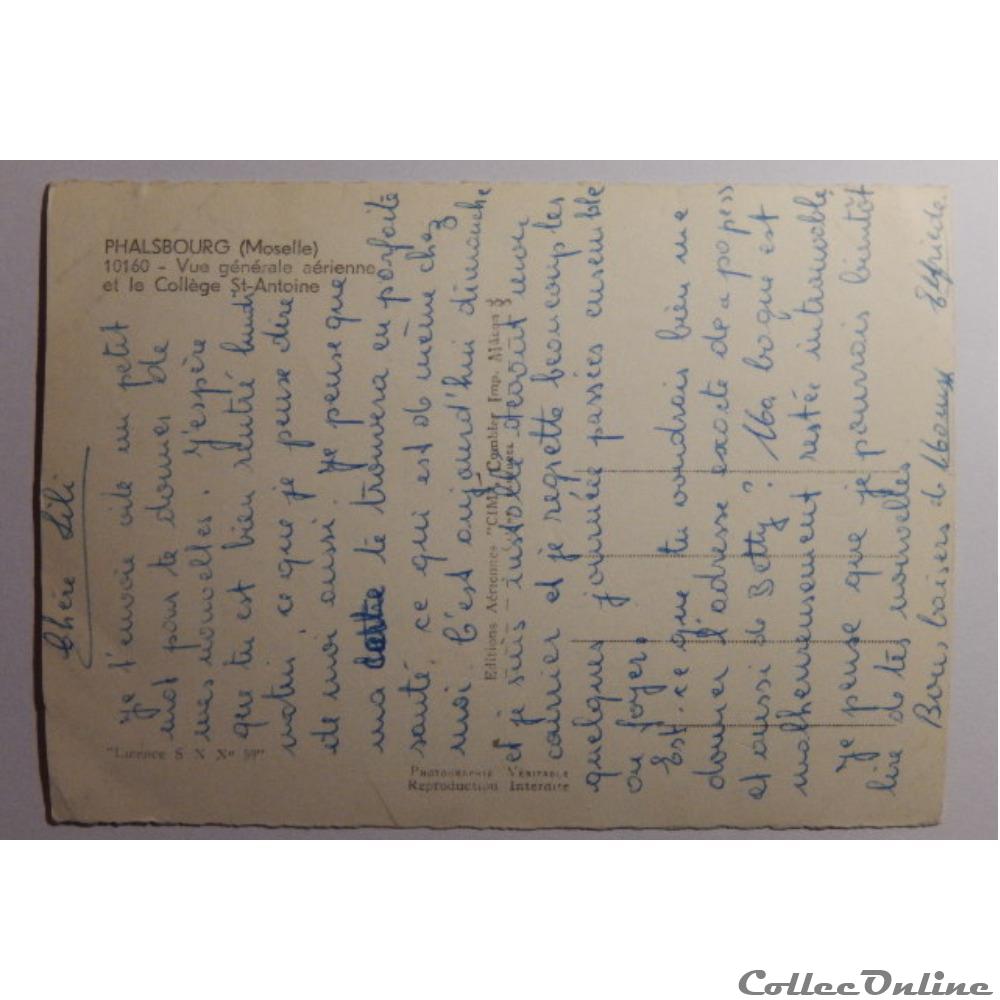 PHALSBOURG (Moselle)
10160 - Vue générale aérienne
et le Collège St-Antoine
"Licence S N N° 59"
Editions Aériennes "CIM", Combier Imp. Mâcon
PHOTOGRAPHIE VÉRITABLE
Reproduction Interdite
Chère Lili
Je t'envoie vite un petit
mot pour te donner de
mes nouvelles. J'espère
que tu est bien rentré lundi
matin, ce que je pense dire
de moi aussi. Je pense que
ma te trouvera en parfaite
santé, ce qui est de même chez
moi. C'est aujourd'hui dimanche
et je suis installé devant mon
courrier et je regrette beaucoup les
quelques journée passées ensemble
au foyer.
Est-ce que tu voudrais bien me
donner l'adresse exacte de
et aussi de Betty? Ma bague est
malheureusement resté introuvable
Je pense que je pourrais bientôt
lire de tes nouvelles
Bons baisers de
CollecOnline